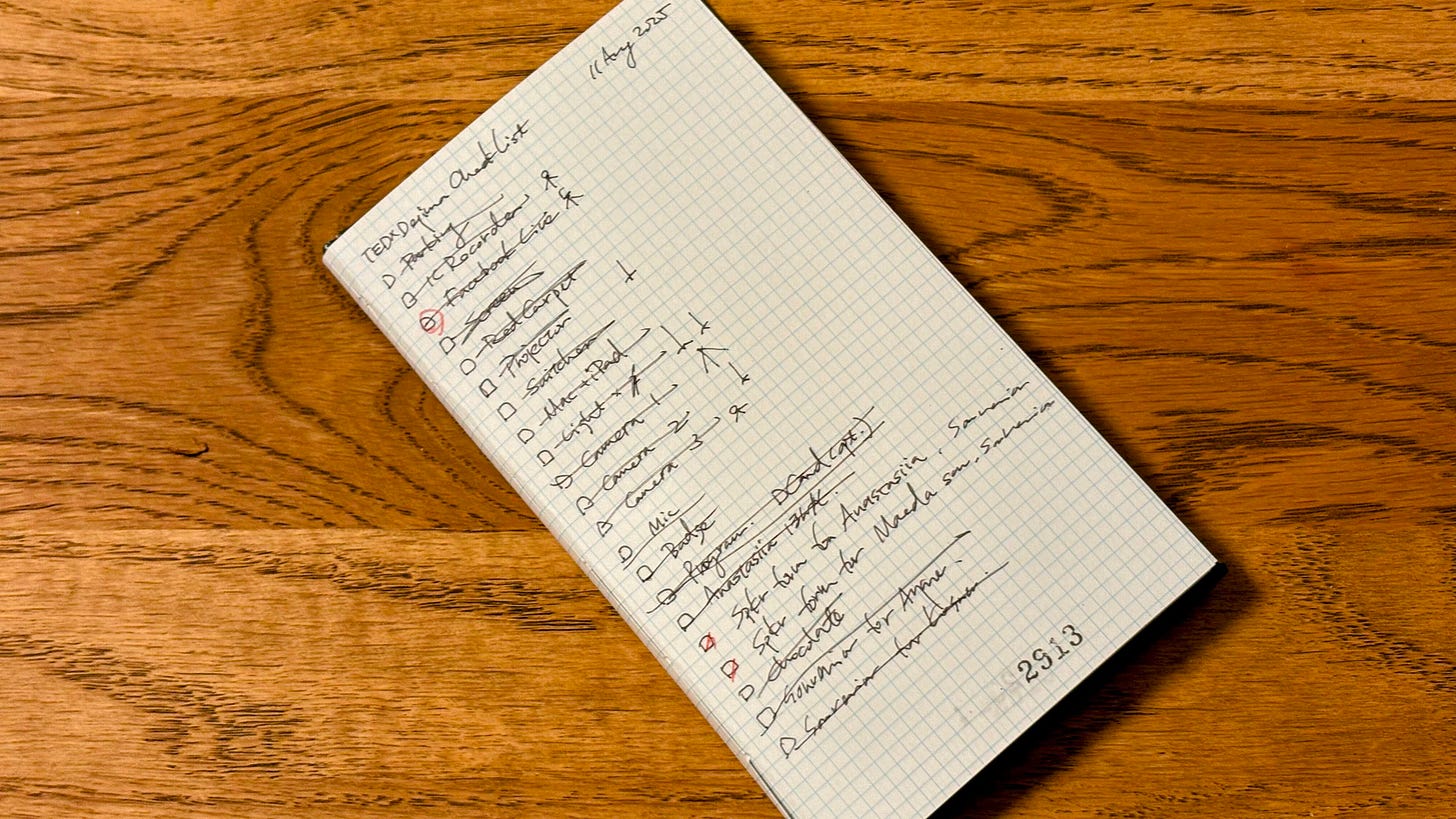 11 Aug 2025
TEDxDejima Checklist
Parking
IC Recorder
Facebook Live
Screen
Red Carpet
Projector
Switcher
Mac + iPad
Light x
Camera 1
Camera 2
Camera 3
Mic
Badge
Program. Card (opt.)
Anastasiia
Spkr form for Anastasiia, Souvenir
Spkr form for Maeda san, Souvenir
Chocolate
Souvenir for
Souvenir for
2913